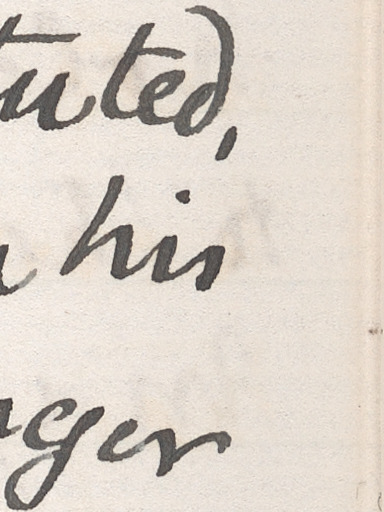 tuted,
his
nger